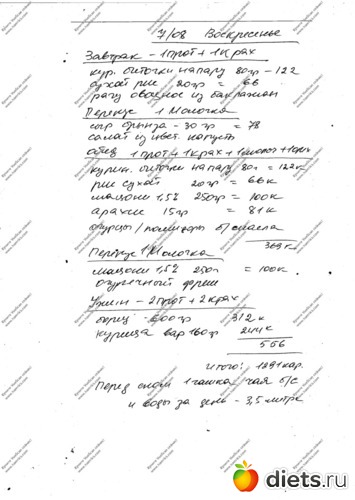 7/08 Воскресенье
Завтрак - 1 прот + 1 крах
кур. биточки на пару 80гр - 122
сухой рис 20гр = 66
рагу овощное из баклажан
Перекус 1 Молочка
сыр брынза - 30гр = 78
салат из цвет. капусты
обед 1 прот + 1 крах + 1 молоч +
курин. биточки на пару 80г = 122к
рис сухой 20гр = 66к
мацони 1,5% 250гр = 100к
арахис 15гр = 81к
огурцы/помидоры б/масла
369к
Перекус 1 Молочка
мацони 1,5% 250г = 100к.
огуречный фреш
Ужин - 2 прот + 2 крах
- 600гр 312к
курица вар 160гр 244к
556
Итого: 1291кар.
Перед сном 1 чашка чая б/с
и воды за день - 3,5 литра
diets.ru